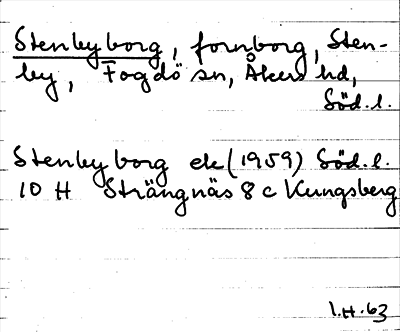 Stenbyborg, fornborg, Sten-
by, Fogdö sn, Åkers hd,
Söd.l.
Stenbyborg ek (1959) Söd.l.
10 H Strängnäs 8 c Kungsberg
1.H.63